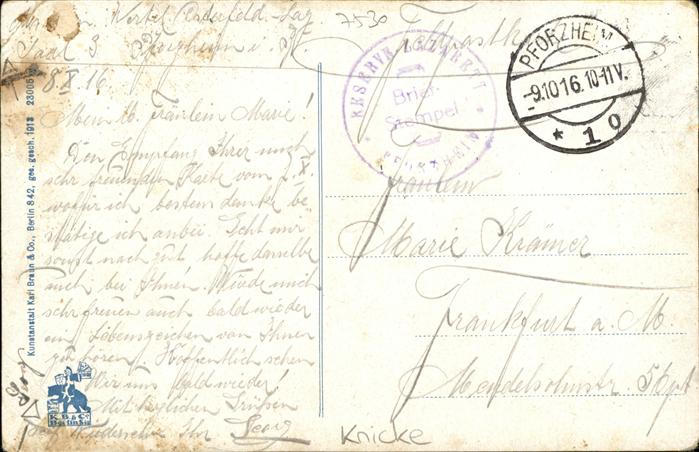 7530
Saal 3 Pforzheim i. B.
Feldpostk
8 X 16
RESERVE LAZARETT
Brief-
Stempel
PFORZHEIM
PFORZHEIM
-9.10.16.10-11V.
* 1 o
Mein lb. Fräulein Marie!
Den Empfang Ihrer mich
sehr freuenden Karte vom 2. X.
wofür ich bestens danke be
stätige ich anbei. Geht mir
sonst noch gut hoffe dasselbe
auch bei Ihnen. Würde mich
sehr freuen auch bald wieder
ein Lebenszeichen von Ihnen
zu hören. Hoffentlich sehen
Wir uns bald wieder!
Mit herzlichen Grüßen
Ihr Georg
Fräulein
Marie Krämer
Frankfurt a. M.
Mendelsohnstr. 56
Knicke
Kunstanstalt Karl Braun & Co., Berlin S.42, ges. gesch. 1913 23005
K.B.& Co
Berlin